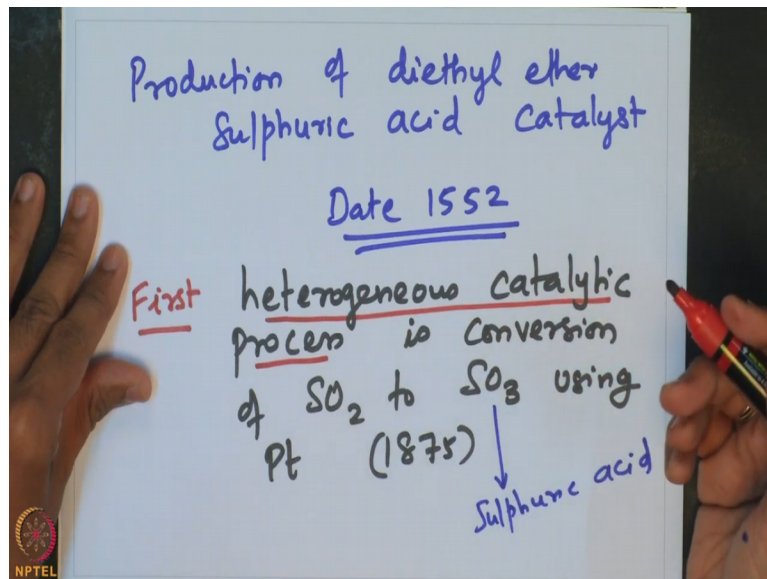 Production of diethyl ether
Sulphuric acid catalyst
Date 1552
First heterogeneous catalytic
process is conversion
of SO2 to SO3 using
Pt (1875)
Sulphuric acid
NPTEL